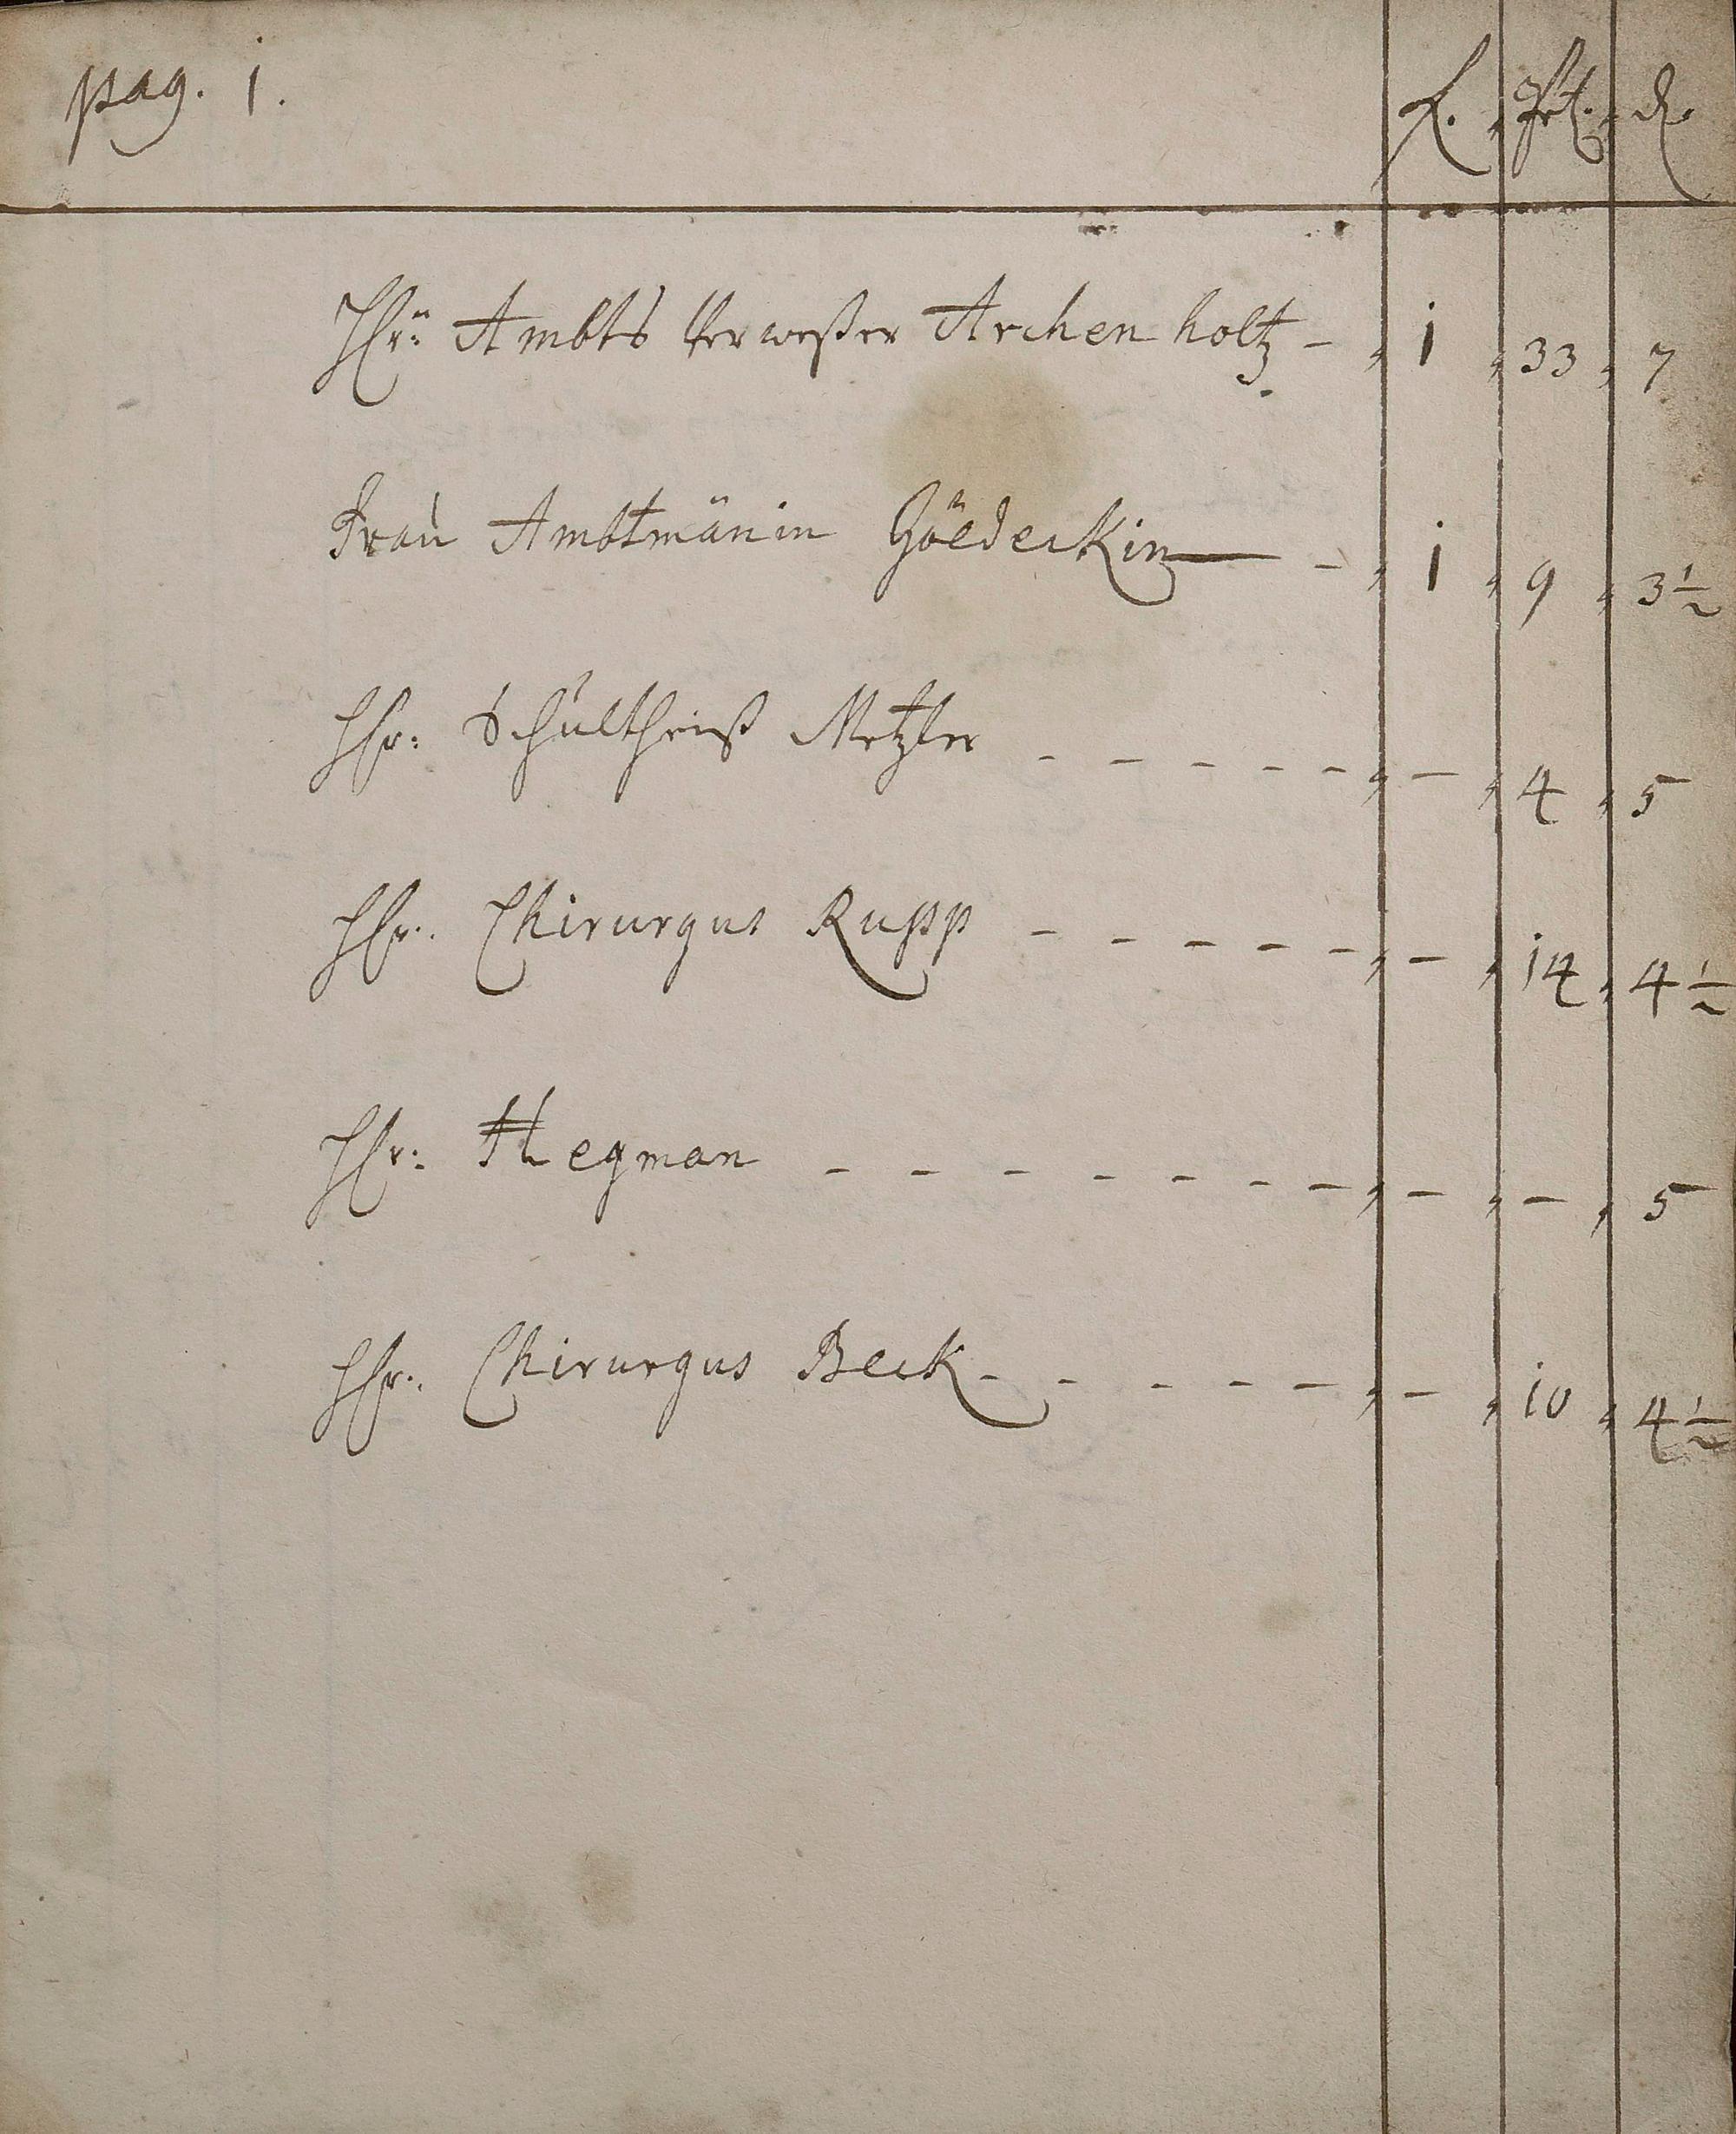 pag. 1. fl. Xr. d.
Hr: Ambts Verweßer Archenholtz - 1 33 7
Frau Ambtmänin Göedeckin - 1 9 3 1/2
Hr: Schultheiß Metzler - - - - - - 4 5
Hr: Chirurgus Rupp - - - - - - 14 4 1/2
Hr: Hegman - - - - - - - - - 5
Hr: Chirurgus Beck - - - - - - 10 4 1/2